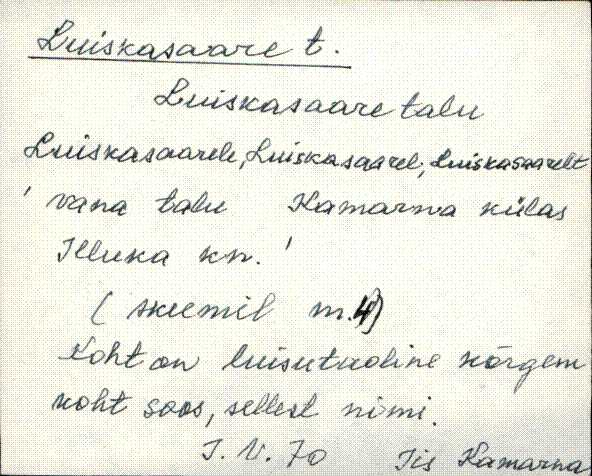 Luiskasaare t.
Luiskasaare talu
Luiskasaarele, Luiskasaarel, Luiskasaarelt
' vana talu Kamarna külas
Illuka kn. '
( skeemil m.4)
Koht on luisutaoline kõrgem
koht soos, sellest nimi.
I. V. 70 Iis Kamarna